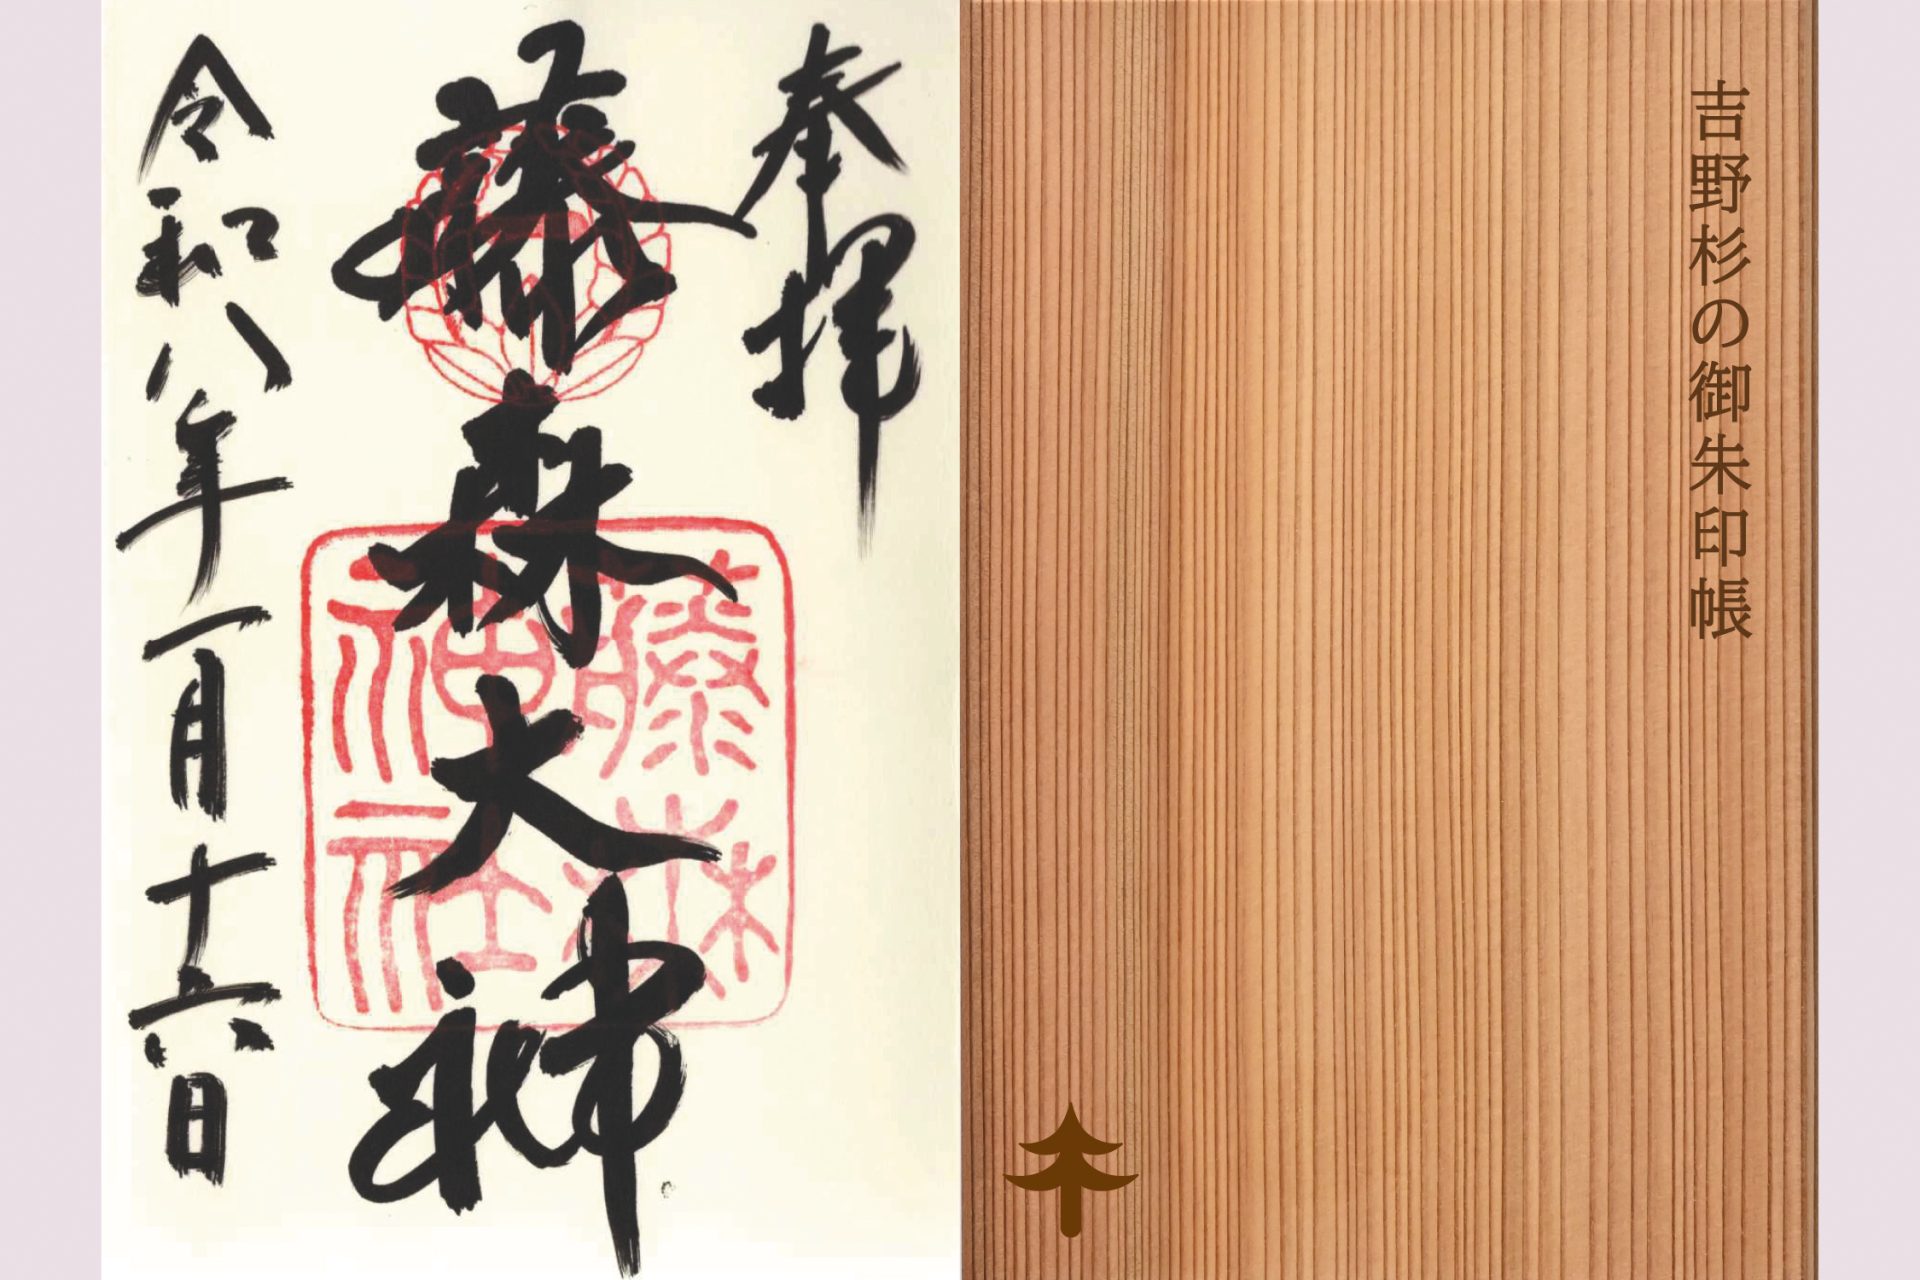 吉野杉の御朱印帳
奉拝
藤森大神
藤森神社
令和八年一月十六日